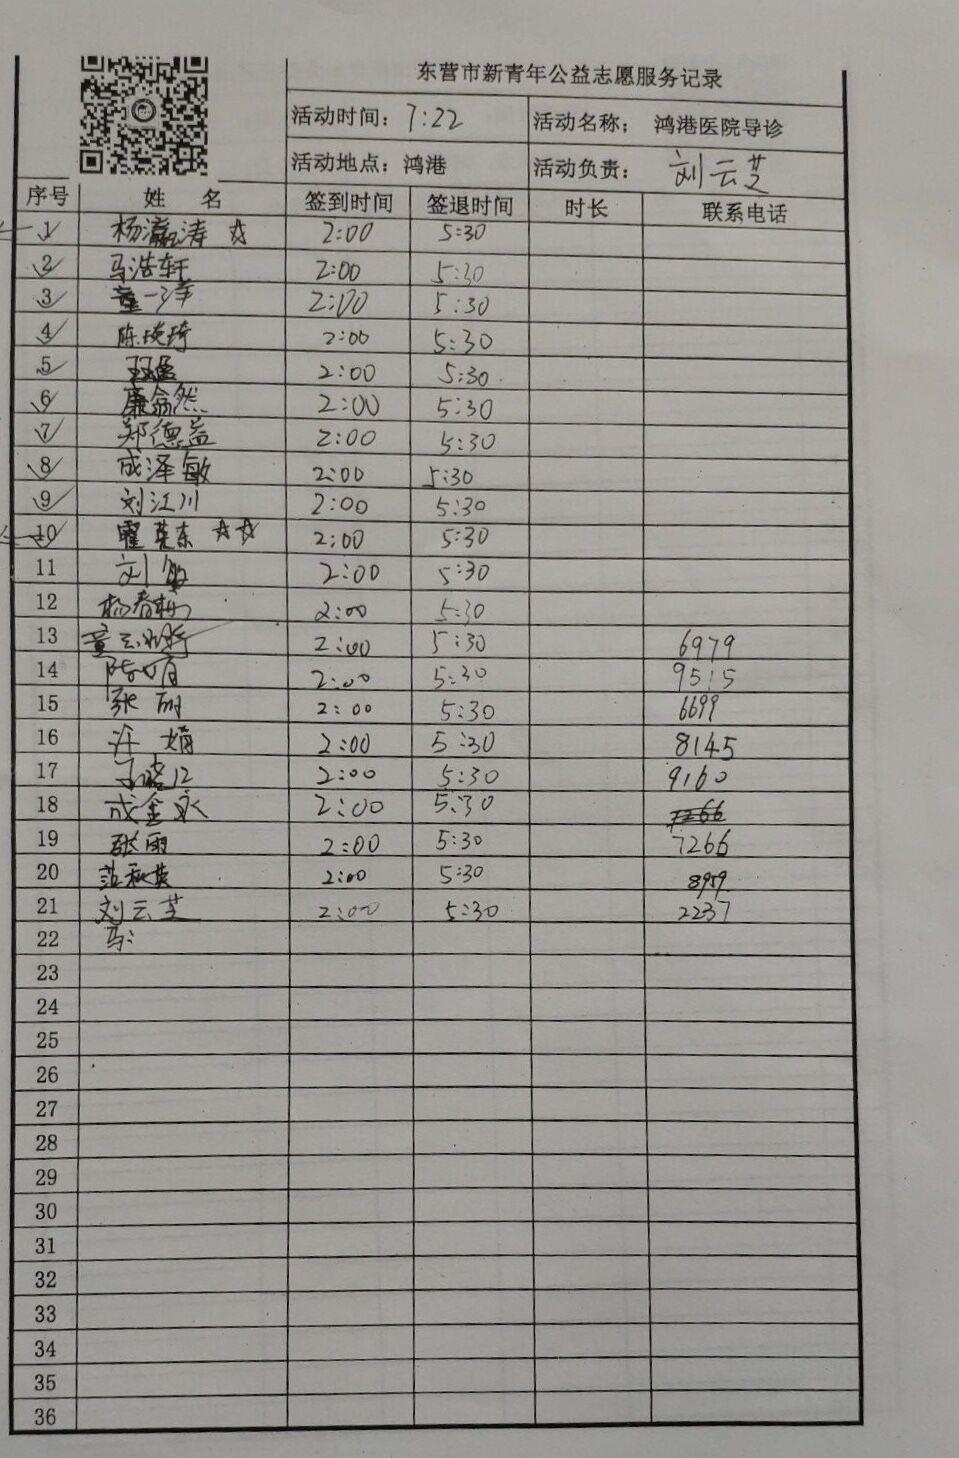 东营市新青年公益志愿服务记录
活动时间：7:22 活动名称； 鸿港医院导诊
活动地点：鸿港 活动负责： 刘云芝
序号 姓 名 签到时间 签退时间 时长 联系电话
1 杨瀛涛 ☆ 2:00 5:30
2 马浩轩 2:00 5:30
3 童一洋 2:00 5:30
4 陈 琦 2:00 5:30
5 2:00 5:30
6 廉翕然 2:00 5:30
7 郑德益 2:00 5:30
8 成泽敏 2:00 5:30
9 刘江川 2:00 5:30
10 霍英东 ☆☆ 2:00 5:30
11 刘敏 2:00 5:30
12 杨春 2:00 5:30
13 童 2:00 5:30 6979
14 2:00 5:30 9515
15 张丽 2:00 5:30 6699
16 许娟 2:00 5:30 8145
17 2:00 5:30 9160
18 成金永 2:00 5:30 7266
19 张雨 2:00 5:30 7266
20 范秋英 2:00 5:30 8959
21 刘云芝 2:00 5:30 2237
22 马
23
24
25
26
27
28
29
30
31
32
33
34
35
36